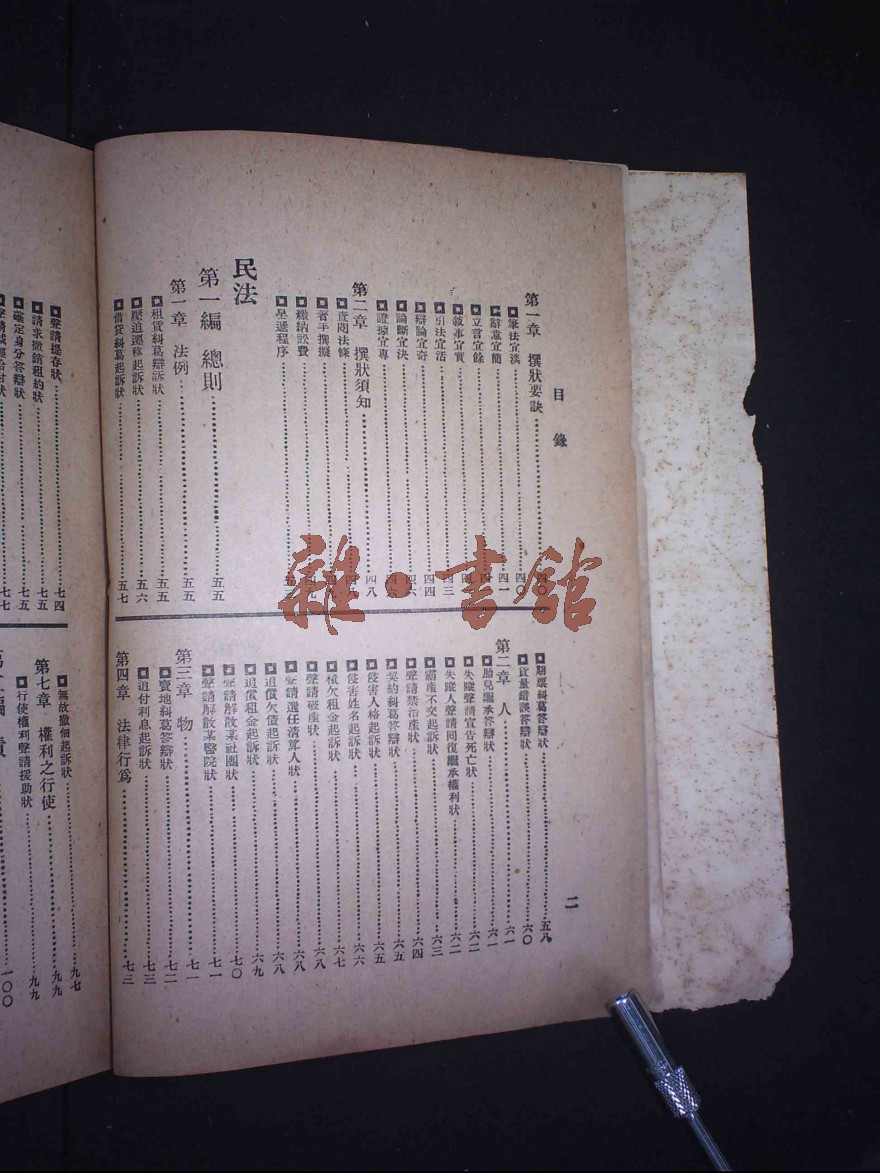 目錄
第一章 撰狀要訣……四〇
筆法宜淡……四〇
辭意宜簡……四一
立言宜餘
敘事宜實……四三
引法宜活……四四
辯論宜奇……四六
論斷宜決
證據宜專
第二章 撰狀須知……四八
查閱法條
著手撰擬
繳納訟費
呈遞程序
民法
第一編 總則……五五
第一章 法例……五五
租賃糾葛辯訴狀……五五
壓迫遷移起訴狀……五六
借貸糾葛起訴狀……五七
期票糾葛答辯狀……五八
貨量錯誤答辯狀……六〇
第二章 人……六一
胎兒繼承答辯狀……六一
失蹤聲請宣告死亡狀……六二
失蹤人聲請回復繼承權利狀……六二
霸產不交起訴狀……六三
聲請禁治產狀……六四
契約糾葛答辯狀……六五
侵害人格起訴狀……六五
侵害姓名起訴狀……六六
積欠租金起訴狀……六七
聲請破產狀……六八
聲請選任清算人狀……六八
追償欠債起訴狀……六八
追償租金起訴狀……六九
聲請解散某社團狀……七〇
聲請解散某醫院狀……七一
第三章 物……七一
賣地糾葛答辯狀……七二
追付利息起訴狀……七三
第四章 法律行爲……七三
二
聲請提存狀……七四
請求撤銷租約狀……七五
確定身分答辯狀……七五
無故撤佃起訴狀……九七
第七章 權利之行使……九九
行使權利聲請援助狀……九九
一〇〇
雜·書館